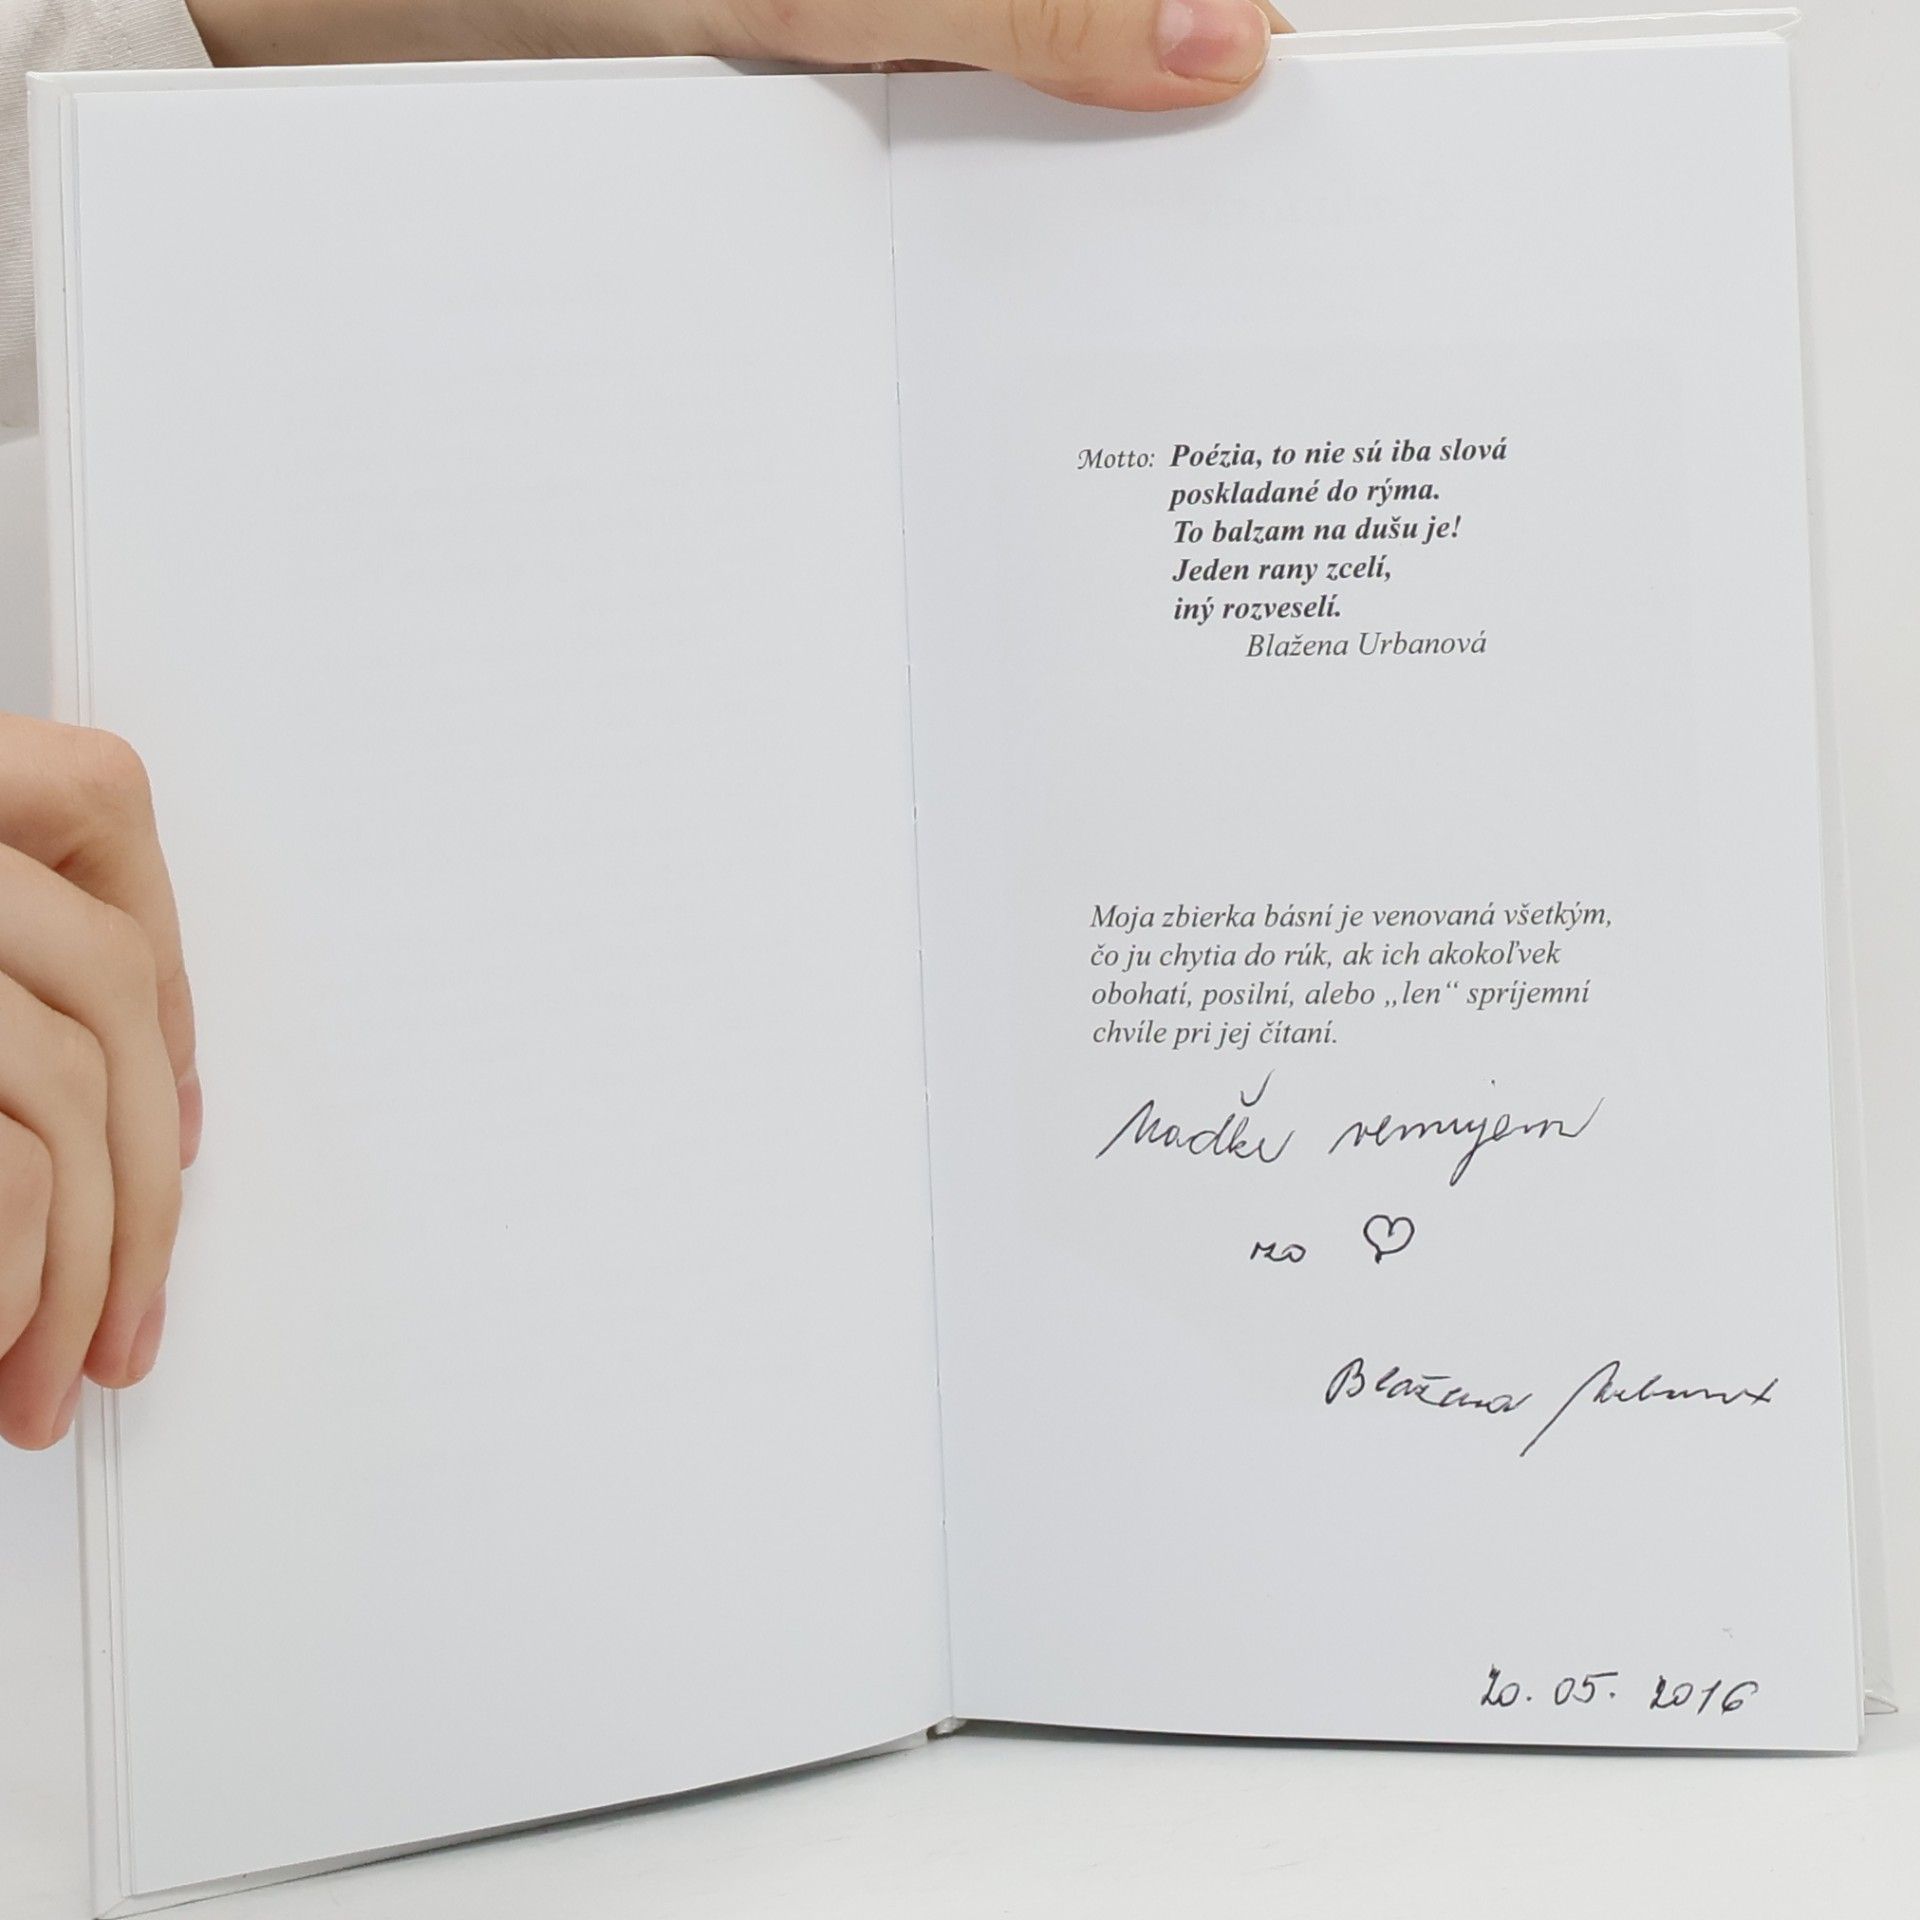 Motto: Poézia, to nie sú iba slová
poskladané do rýma.
To balzam na dušu je!
Jeden rany zcelí,
iný rozveselí.
Blažena Urbanová
Moja zbierka básní je venovaná všetkým,
čo ju chytia do rúk, ak ich akokoľvek
obohatí, posilní, alebo „len“ spríjemní
chvíle pri jej čítaní.
venujem
zo ♡
Blažena
20. 05. 2016